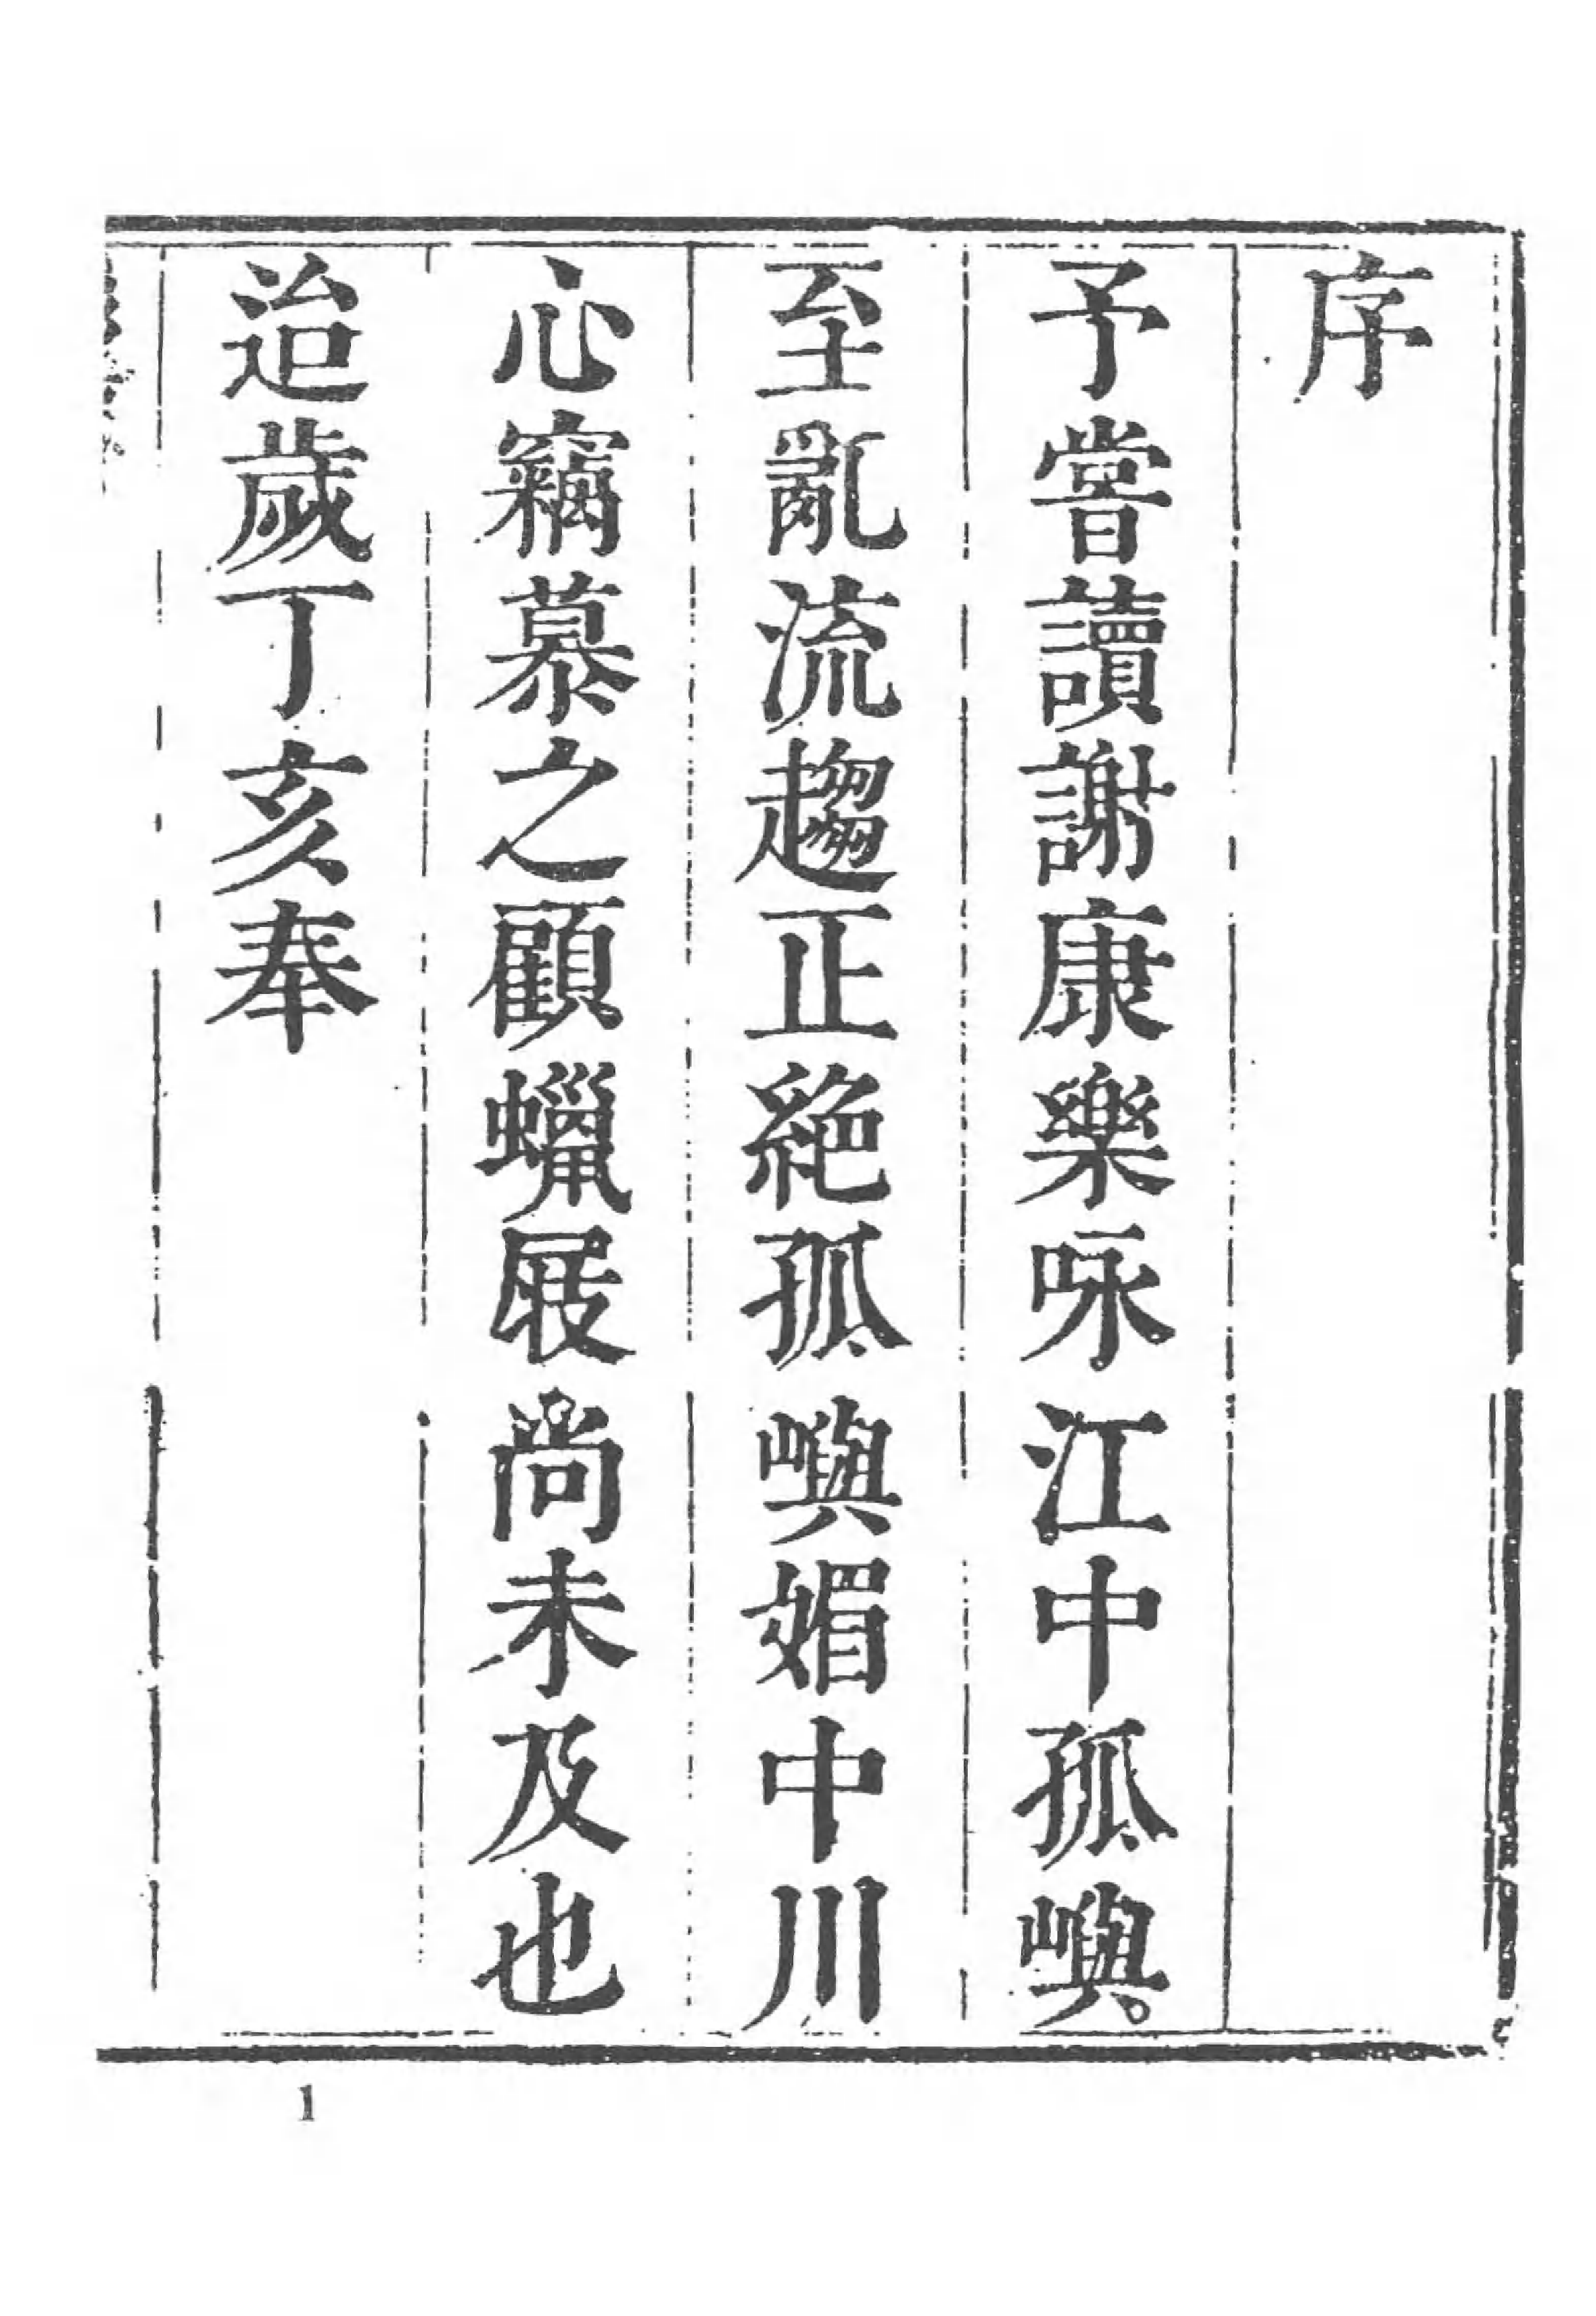 序
予嘗讀謝康樂咏江中孤嶼
至亂流趨正絶孤嶼媚中川
心竊慕之顧蠟屐尚未及也
迨歲丁亥奉
1